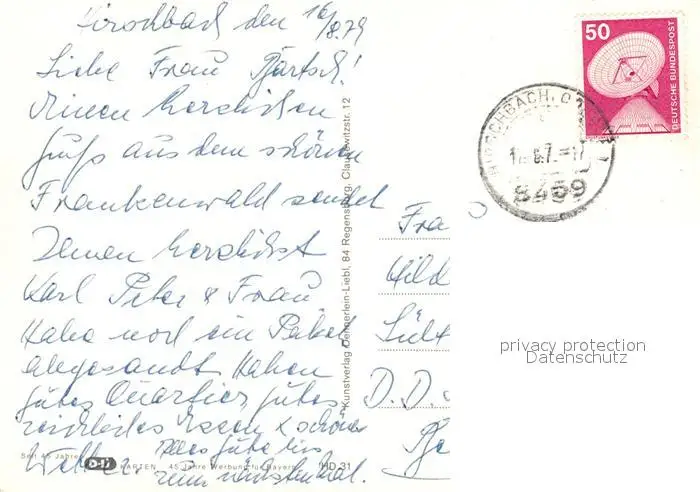 Hirschbach den 16/8.79
Liebe Frau Pjartsch!
Einen herzlichen
Gruß aus dem schönen
Frankenwald sendet
Ihnen herzlichst
Karl Peter & Frau
Habe noch ein Paket
abgesandt Haben
gutes Quartier, gutes
reichliches Essen & schönes
Wetter. Alles Gute bis
zum nächstenmal.
Fra
Hild
D.D.
50
DEUTSCHE BUNDESPOST
8459
Kunstverlag Oennerlein-Liebl, 84 Regensburg, Clausewitzstr. 12
Seit 45 Jahren
KARTEN 45 Jahre Werbung für Bayern HD 31
privacy protection
Datenschutz